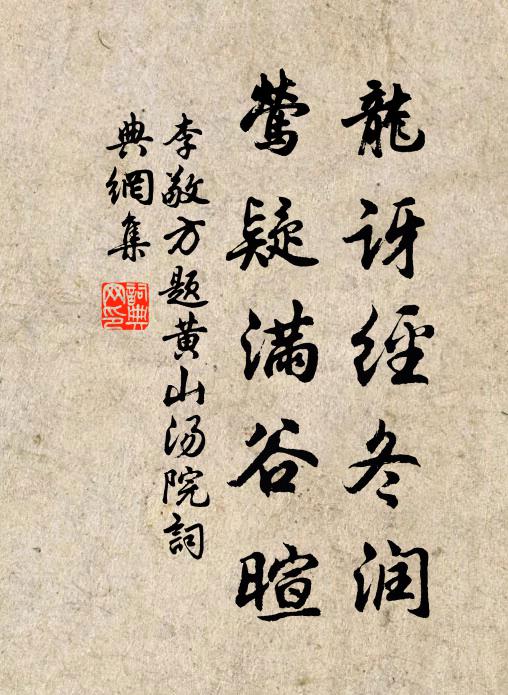 龍訝經冬润
鶯疑滿谷暄
李敬方题黄山汤院詞
典網集
詞典网印